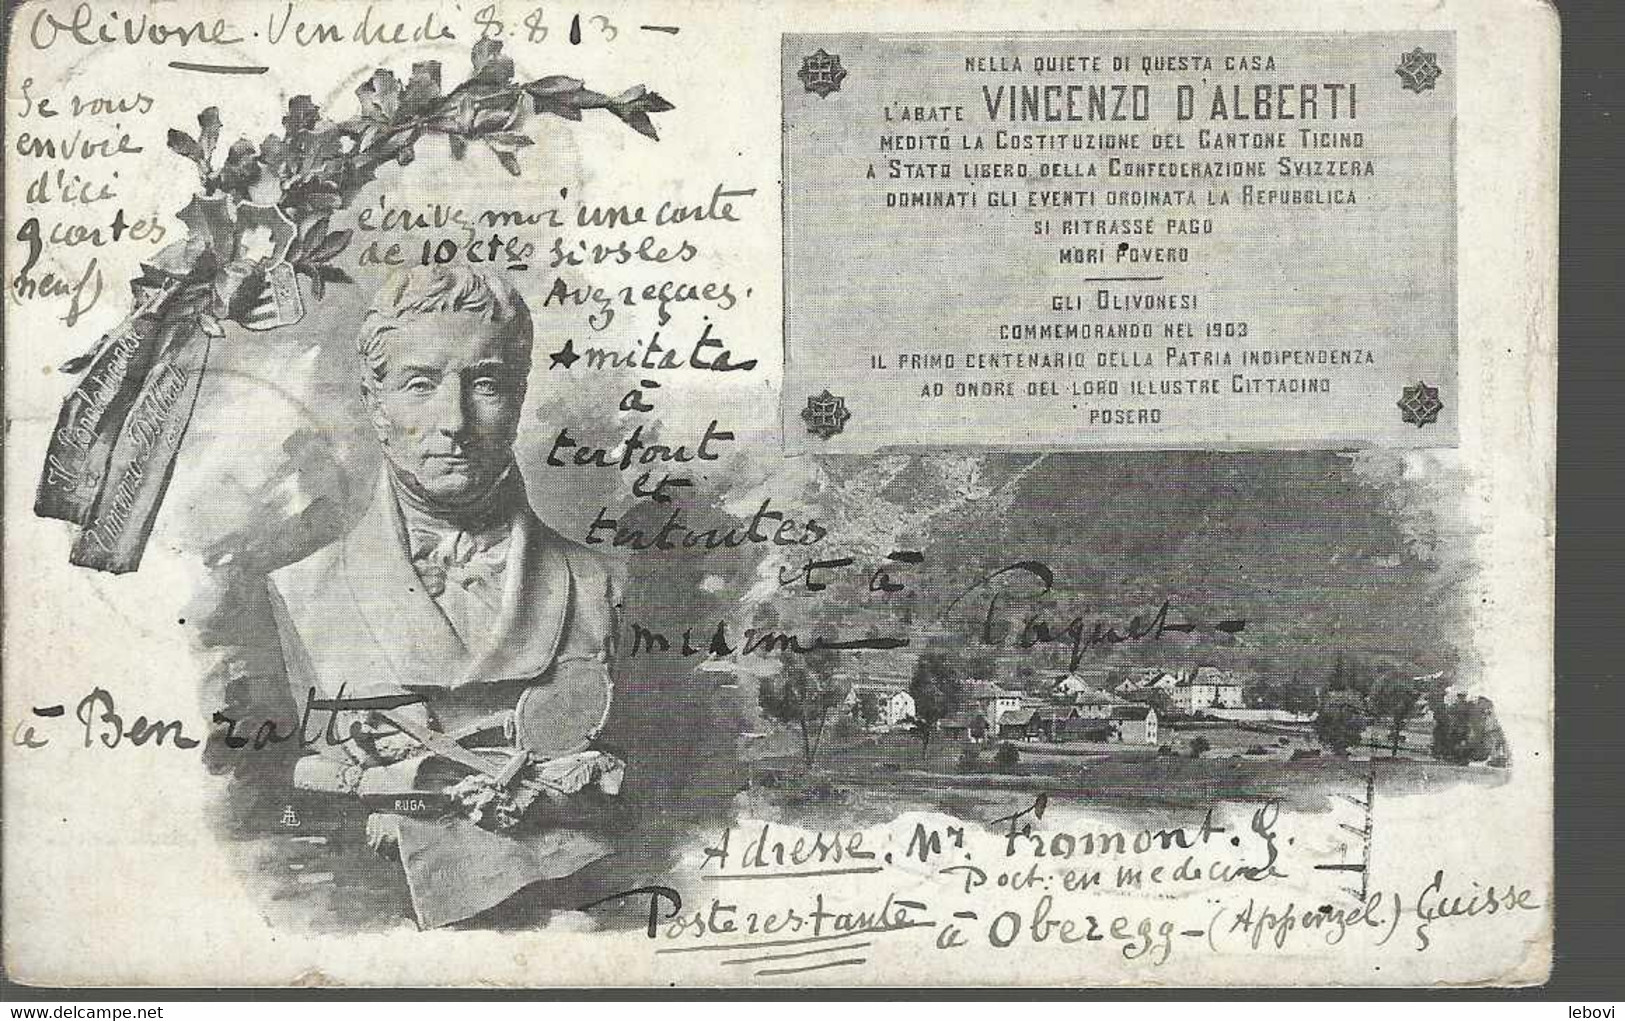 Olivone. Vendredi 8.8 13 —
Je vous
envoie
d'ici
9 cartes
(neuf)
écrivez moi une carte
de 10 ctes si vs les
Avez reçues.
Amitata
à
tertout
et
tertoutes
et à
madame Paquet -
à Ben ratte
NELLA QUIETE DI QUESTA CASA
L'ABATE VINCENZO D'ALBERTI
MEDITÓ LA COSTITUZIONE DEL CANTONE TICINO
A STATO LIBERO DELLA CONFEDERAZIONE SVIZZERA
DOMINATI GLI EVENTI ORDINATA LA REPUBBLICA
SI RITRASSE PAGO
MORÍ POVERO
GLI OLIVONESI
COMMEMORANDO NEL 1903
IL PRIMO CENTENARIO DELLA PATRIA INDIPENDENZA
AD ONORE DEL LORO ILLUSTRE CITTADINO
POSERO
Vincenzo D'Alberti
RUGA
Adresse: Mr. Fromont. G.
Doct: en medecine
Poste restante à Oberegg - (Appenzel.) Suisse
lebovi